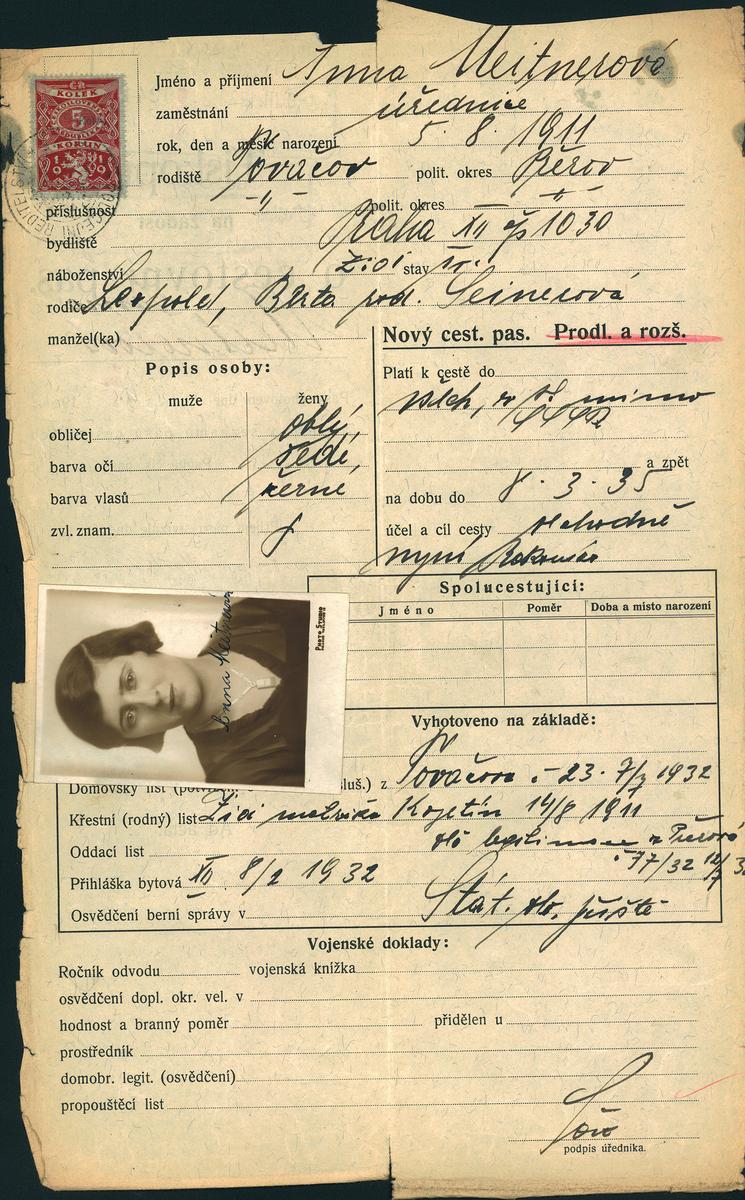 KOLEK
ČESKOSLOVENSKÁ
REPUBLIKA
5
KORUN
1919
Jméno a příjmení Anna Meitnerová
zaměstnání úřednice
rok, den a měsíc narození 5. 8. 1911
rodiště Továčov polit. okres Přerov
příslušnost -"- polit. okres -"-
bydliště Praha XII čp 1030
náboženství židi stav sv.
rodiče Leopold, Berta roz. Seinerová
manžel(ka)
Nový cest. pas. Prodl. a rozš.
Popis osoby:
muže ženy
obličej oblý,
barva očí šedé,
barva vlasů černé
zvl. znam.
Platí k cestě do
všech mimo
SSSR
a zpět
na dobu do 8. 3. 35
účel a cíl cesty
nyní
Spolucestující:
Jméno Poměr Doba a místo narození
Anna Meitnerová
PHOTO STUDIO
Vyhotoveno na základě:
Domovský list z Továčova 23. 7/7 1932
Křestní (rodný) list Židi matrika Kojetín 14/8 1911
Oddací list
77/32
Přihláška bytová XII 8/2 1932
Osvědčení berní správy v Stát.
Vojenské doklady:
Ročník odvodu vojenská knížka
osvědčení dopl. okr. vel. v
hodnost a branný poměr přidělen u
prostředník
domobr. legit. (osvědčení)
propouštěcí list
podpis úředníka.